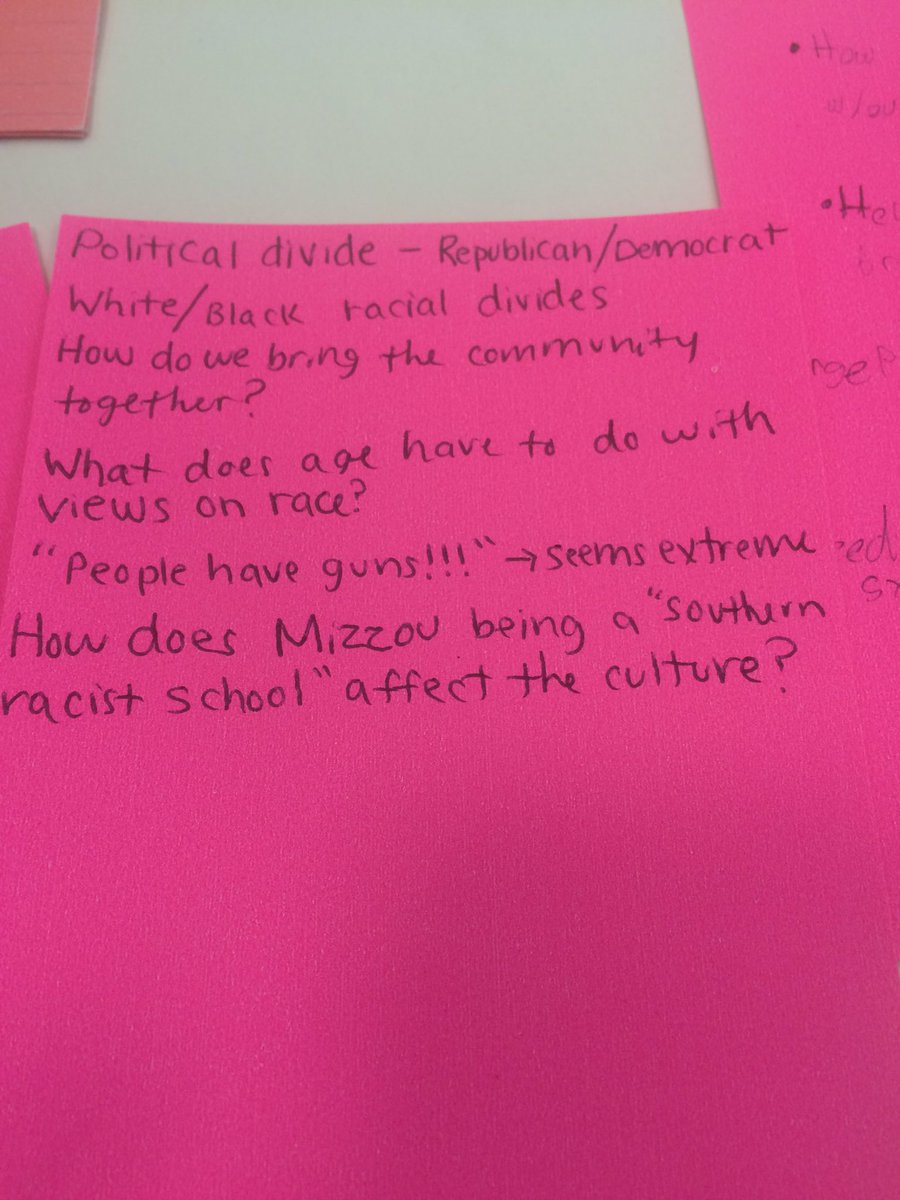 Political divide - Republican/Democrat
White/Black racial divides
How do we bring the community
together?
What does age have to do with
views on race?
"People have guns!!!" → seems extreme
How does Mizzou being a "southern
racist school" affect the culture?
• How
w/ou
• Hel